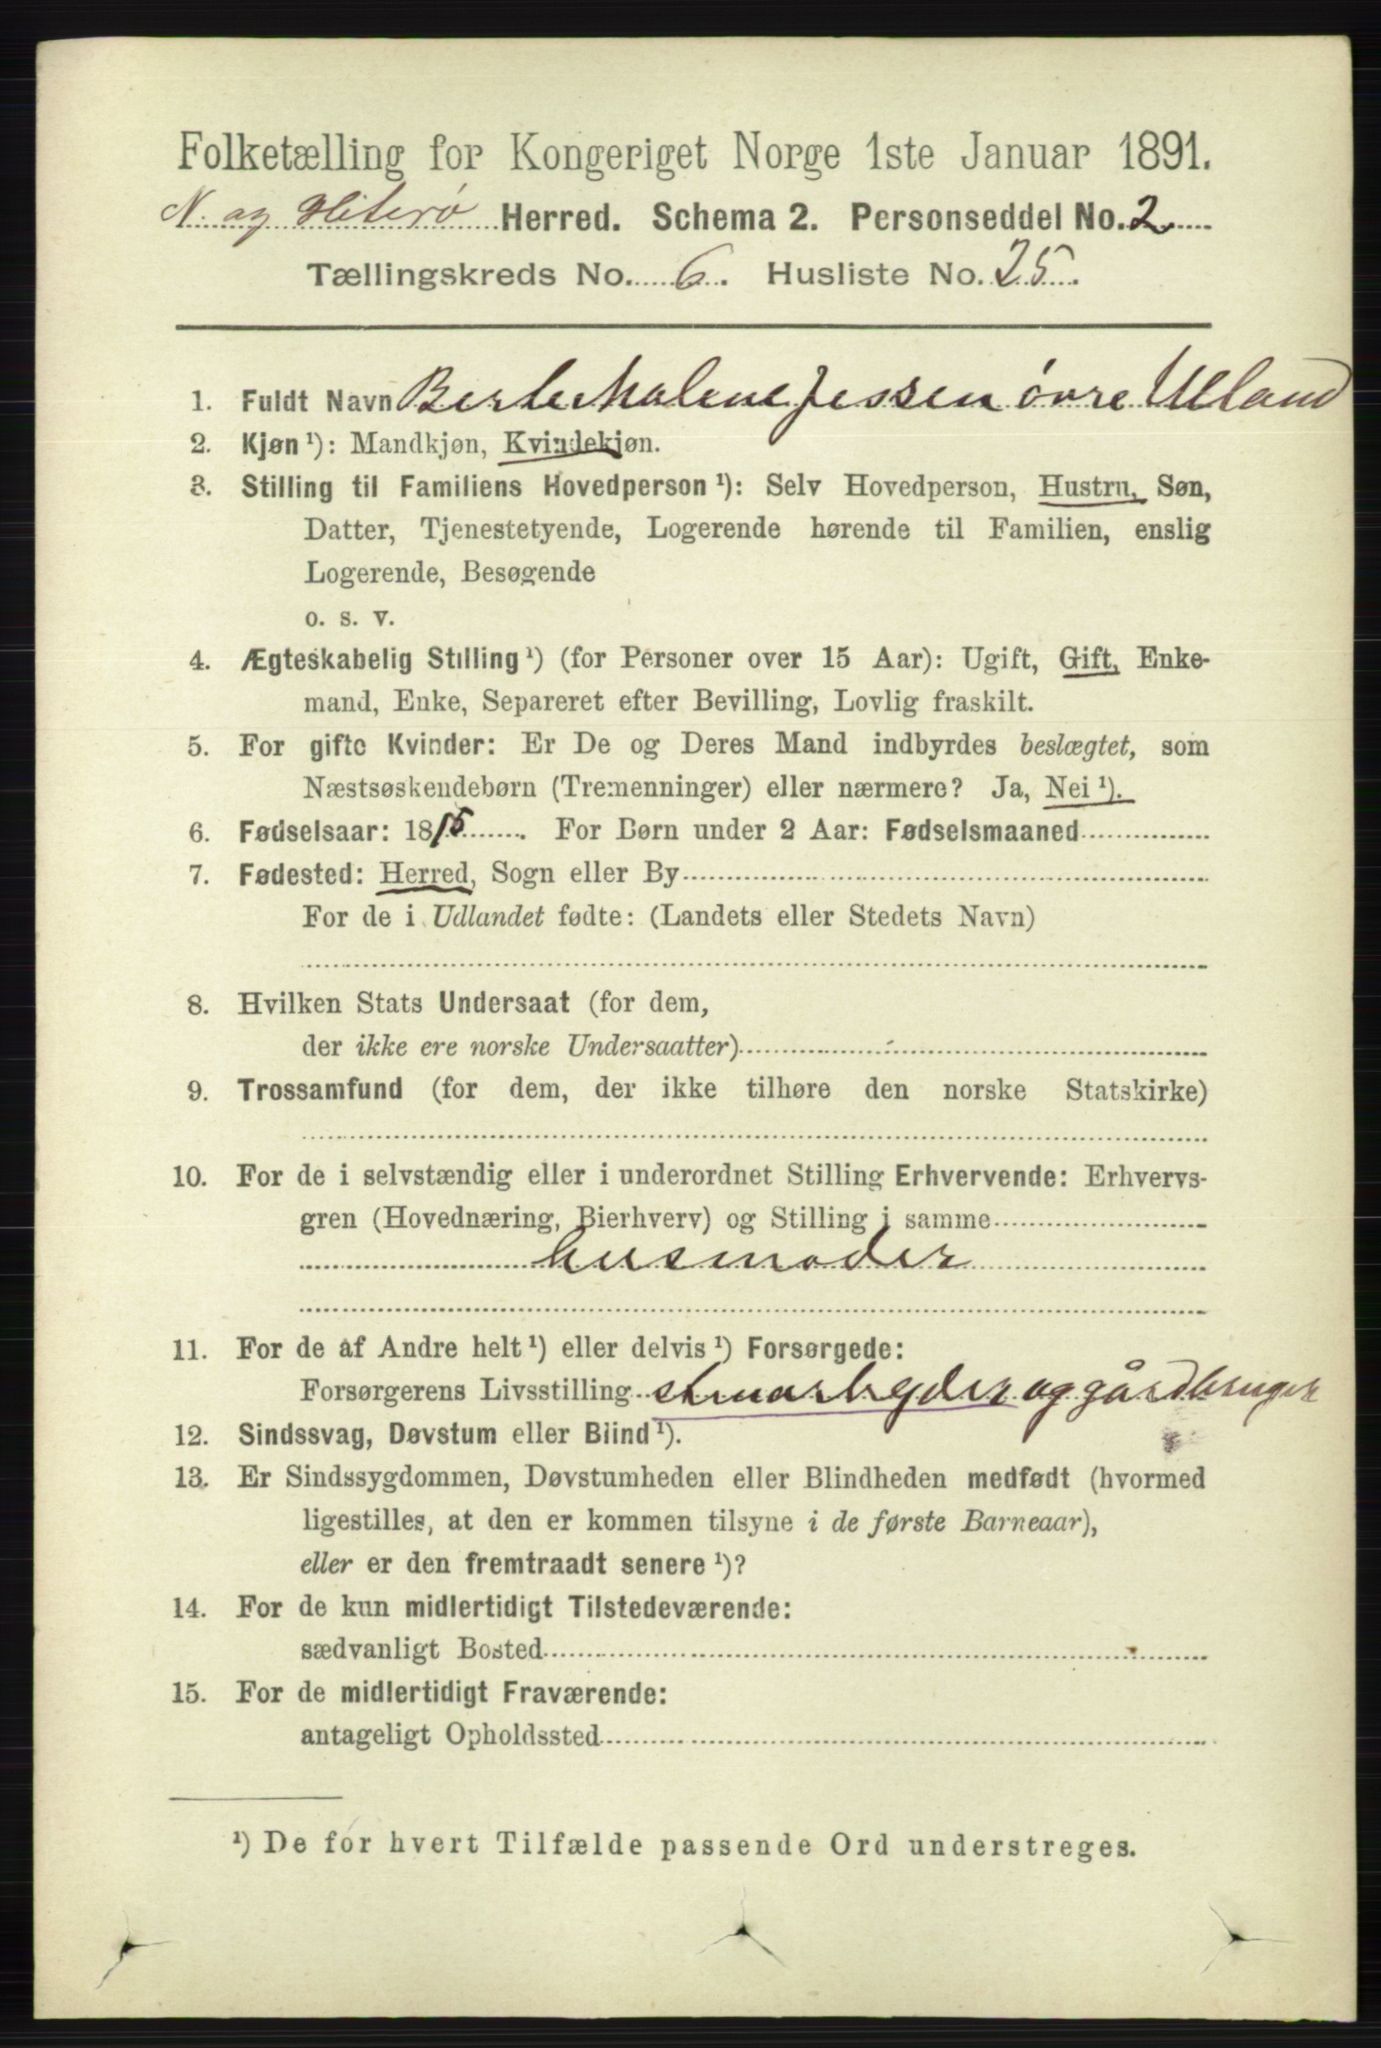 Folketælling for Kongeriget Norge 1ste Januar 1891.
N. og Hiterø Herred. Schema 2. Personseddel No. 2
Tællingskreds No. 6. Husliste No. 25.
1. Fuldt Navn Berte Malene Jessen øvre Ulland
2. Kjøn ¹): Mandkjøn, Kvindekjøn.
3. Stilling til Familiens Hovedperson ¹): Selv Hovedperson, Hustru, Søn,
Datter, Tjenestetyende, Logerende hørende til Familien, enslig
Logerende, Besøgende
o. s. v.
4. Ægteskabelig Stilling ¹) (for Personer over 15 Aar): Ugift, Gift, Enke-
mand, Enke, Separeret efter Bevilling, Lovlig fraskilt.
5. For gifte Kvinder: Er De og Deres Mand indbyrdes beslægtet, som
Næstsøskendebørn (Tremenninger) eller nærmere? Ja, Nei ¹).
6. Fødselsaar: 1815. For Børn under 2 Aar: Fødselsmaaned
7. Fødested: Herred, Sogn eller By
For de i Udlandet fødte: (Landets eller Stedets Navn)
8. Hvilken Stats Undersaat (for dem,
der ikke ere norske Undersaatter)
9. Trossamfund (for dem, der ikke tilhøre den norske Statskirke)
10. For de i selvstændig eller i underordnet Stilling Erhvervende: Erhvervs-
gren (Hovednæring, Bierhverv) og Stilling i samme
husmoder
11. For de af Andre helt ¹) eller delvis ¹) Forsørgede:
Forsørgerens Livsstilling og gårdbruger
12. Sindssvag, Døvstum eller Blind ¹).
13. Er Sindssygdommen, Døvstumheden eller Blindheden medfødt (hvormed
ligestilles, at den er kommen tilsyne i de første Barneaar),
eller er den fremtraadt senere ¹)?
14. For de kun midlertidigt Tilstedeværende:
sædvanligt Bosted
15. For de midlertidigt Fraværende:
antageligt Opholdssted
¹) De for hvert Tilfælde passende Ord understreges.